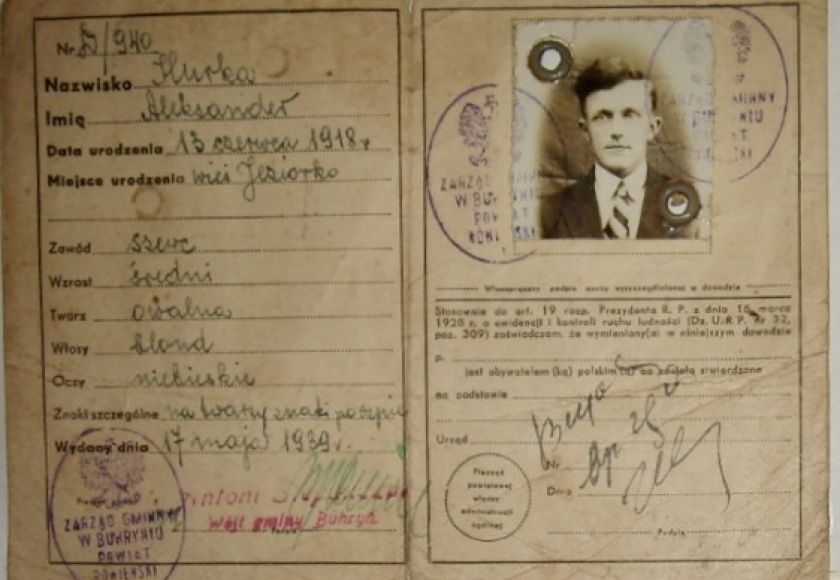 Nr D/940
Nazwisko Hurka
Imię Aleksander
Data urodzenia 13 czerwca 1918 r.
Miejsce urodzenia wieś Jeziorko
Zawód szewc
Wzrost średni
Twarz owalna
Włosy blond
Oczy niebieskie
Znaki szczególne na twarzy znaki
Wydany dnia 17 maja 1939 r.
Wójt gminy Buhryń
Podpis
ZARZĄD GMINNY
W BUHRYNIU
POWIAT
RÓWIEŃSKI
ZARZĄD GMINNY
W BUHRYNIU
POWIAT
RÓWIEŃSKI
ZARZĄD GMINNY
W BUHRYNIU
POWIAT
Własnoręczny podpis osoby wyszczególnionej w dowodzie
Stosownie do art. 19 rozp. Prezydenta R. P. z dnia 16 marca
1928 r. o ewidencji i kontroli ruchu ludności (Dz. U. R. P. Nr 32,
poz. 309) zaświadczam, że wymieniony(a) w niniejszym dowodzie
p.
jest obywatelem (ką) polskim (ą) co zostało stwierdzone
na podstawie
Urząd
Nr
Dnia
Pieczęć
powiatowej
władzy
administracji
ogólnej
Podpis